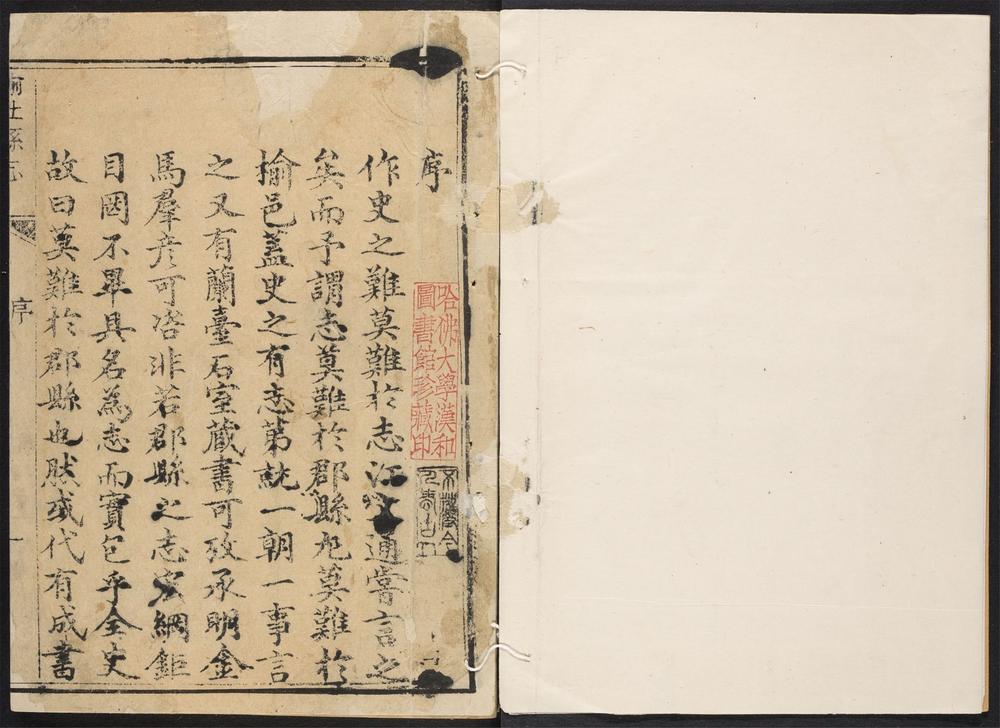 序
作史之難莫難於志江文通嘗言之
矣而予謂志莫難於郡縣尤莫難於
揄邑蓋史之有志第就一朝一事言
之又有蘭臺石室蔵書可攷承明金
馬羣彦可咨非若郡縣之志宏綱鉅
目罔不畢具名為志而實包乎全史
故曰莫難於郡縣也肰或代有成書
社縣志
序
一
哈佛大學漢和
圖書館珍藏印